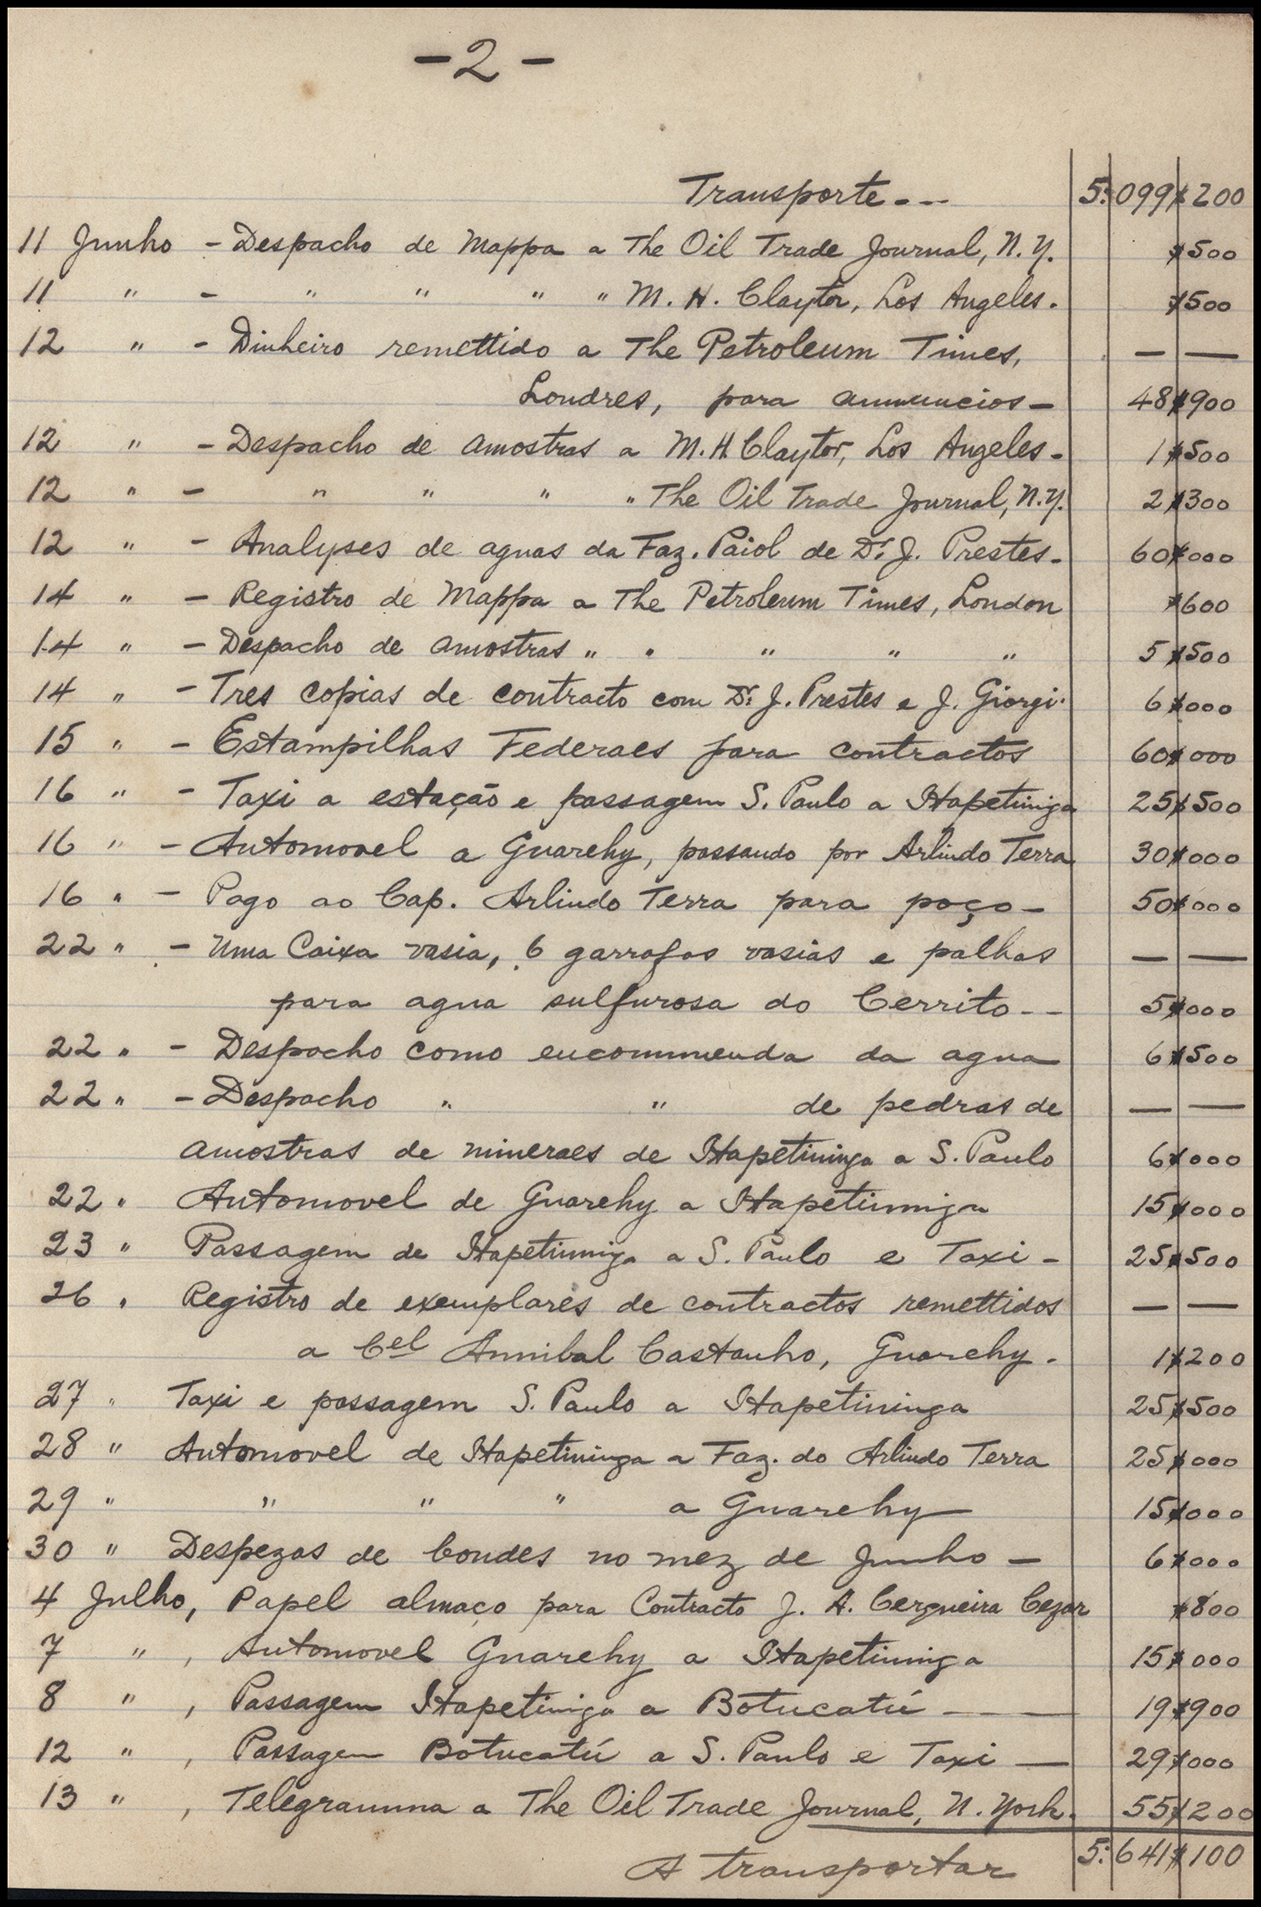 -2-
Transporte--- 5:099$200
11 Junho - Despacho de Mappa a The Oil Trade Journal, N.Y. $500
11 " - " " " " M. H. Claytor, Los Angeles. $500
12 " - Dinheiro remettido a The Petroleum Times, — —
Londres, para annuncios - 48$900
12 " - Despacho de amostras a M. H. Claytor, Los Angeles - 1$500
12 " - " " " " The Oil Trade Journal, N.Y. 2$300
12 " - Analyses de aguas da Faz. Paiol de Dr. J. Prestes - 60$000
14 " - Registro de Mappa a The Petroleum Times, London $600
14 " - Despacho de amostras " " " " " 5$500
14 " - Tres copias de contracto com Dr. J. Prestes e J. Giorgi. 6$000
15 " - Estampilhas Federaes para contractos 60$000
16 " - Taxi a estação e passagem S. Paulo a Itapetininga 25$500
16 " - Automovel a Guarehy, passando por Arlindo Terra 30$000
16 " - Pago ao Cap. Arlindo Terra para poço - 50$000
22 " - Uma Caixa vasia, 6 garrafas vasias e palhas — —
para agua sulfurosa do Cerrito -- 5$000
22 " - Despacho como encommenda da agua 6$500
22 " - Despacho " " de pedras de — —
amostras de mineraes de Itapetininga a S. Paulo 6$000
22 " Automovel de Guarehy a Itapetininga 15$000
23 " Passagem de Itapetininga a S. Paulo e Taxi - 25$500
26 " Registro de exemplares de contractos remettidos — —
a Cel Annibal Castanho, Guarehy. 1$200
27 " Taxi e passagem S. Paulo a Itapetininga 25$500
28 " Automovel de Itapetininga a Faz. do Arlindo Terra 25$000
29 " " " " a Guarehy 15$000
30 " Despezas de bondes no mez de Junho - 6$000
4 Julho, Papel almaço para Contracto J. A. Cerqueira Cezar $800
7 " , Automovel Guarehy a Itapetininga 15$000
8 " , Passagem Itapetininga a Botucatú — — 19$900
12 " , Passagem Botucatú a S. Paulo e Taxi — 29$000
13 " , Telegramma a The Oil Trade Journal, N. York. 55$200
A transportar 5:641$100